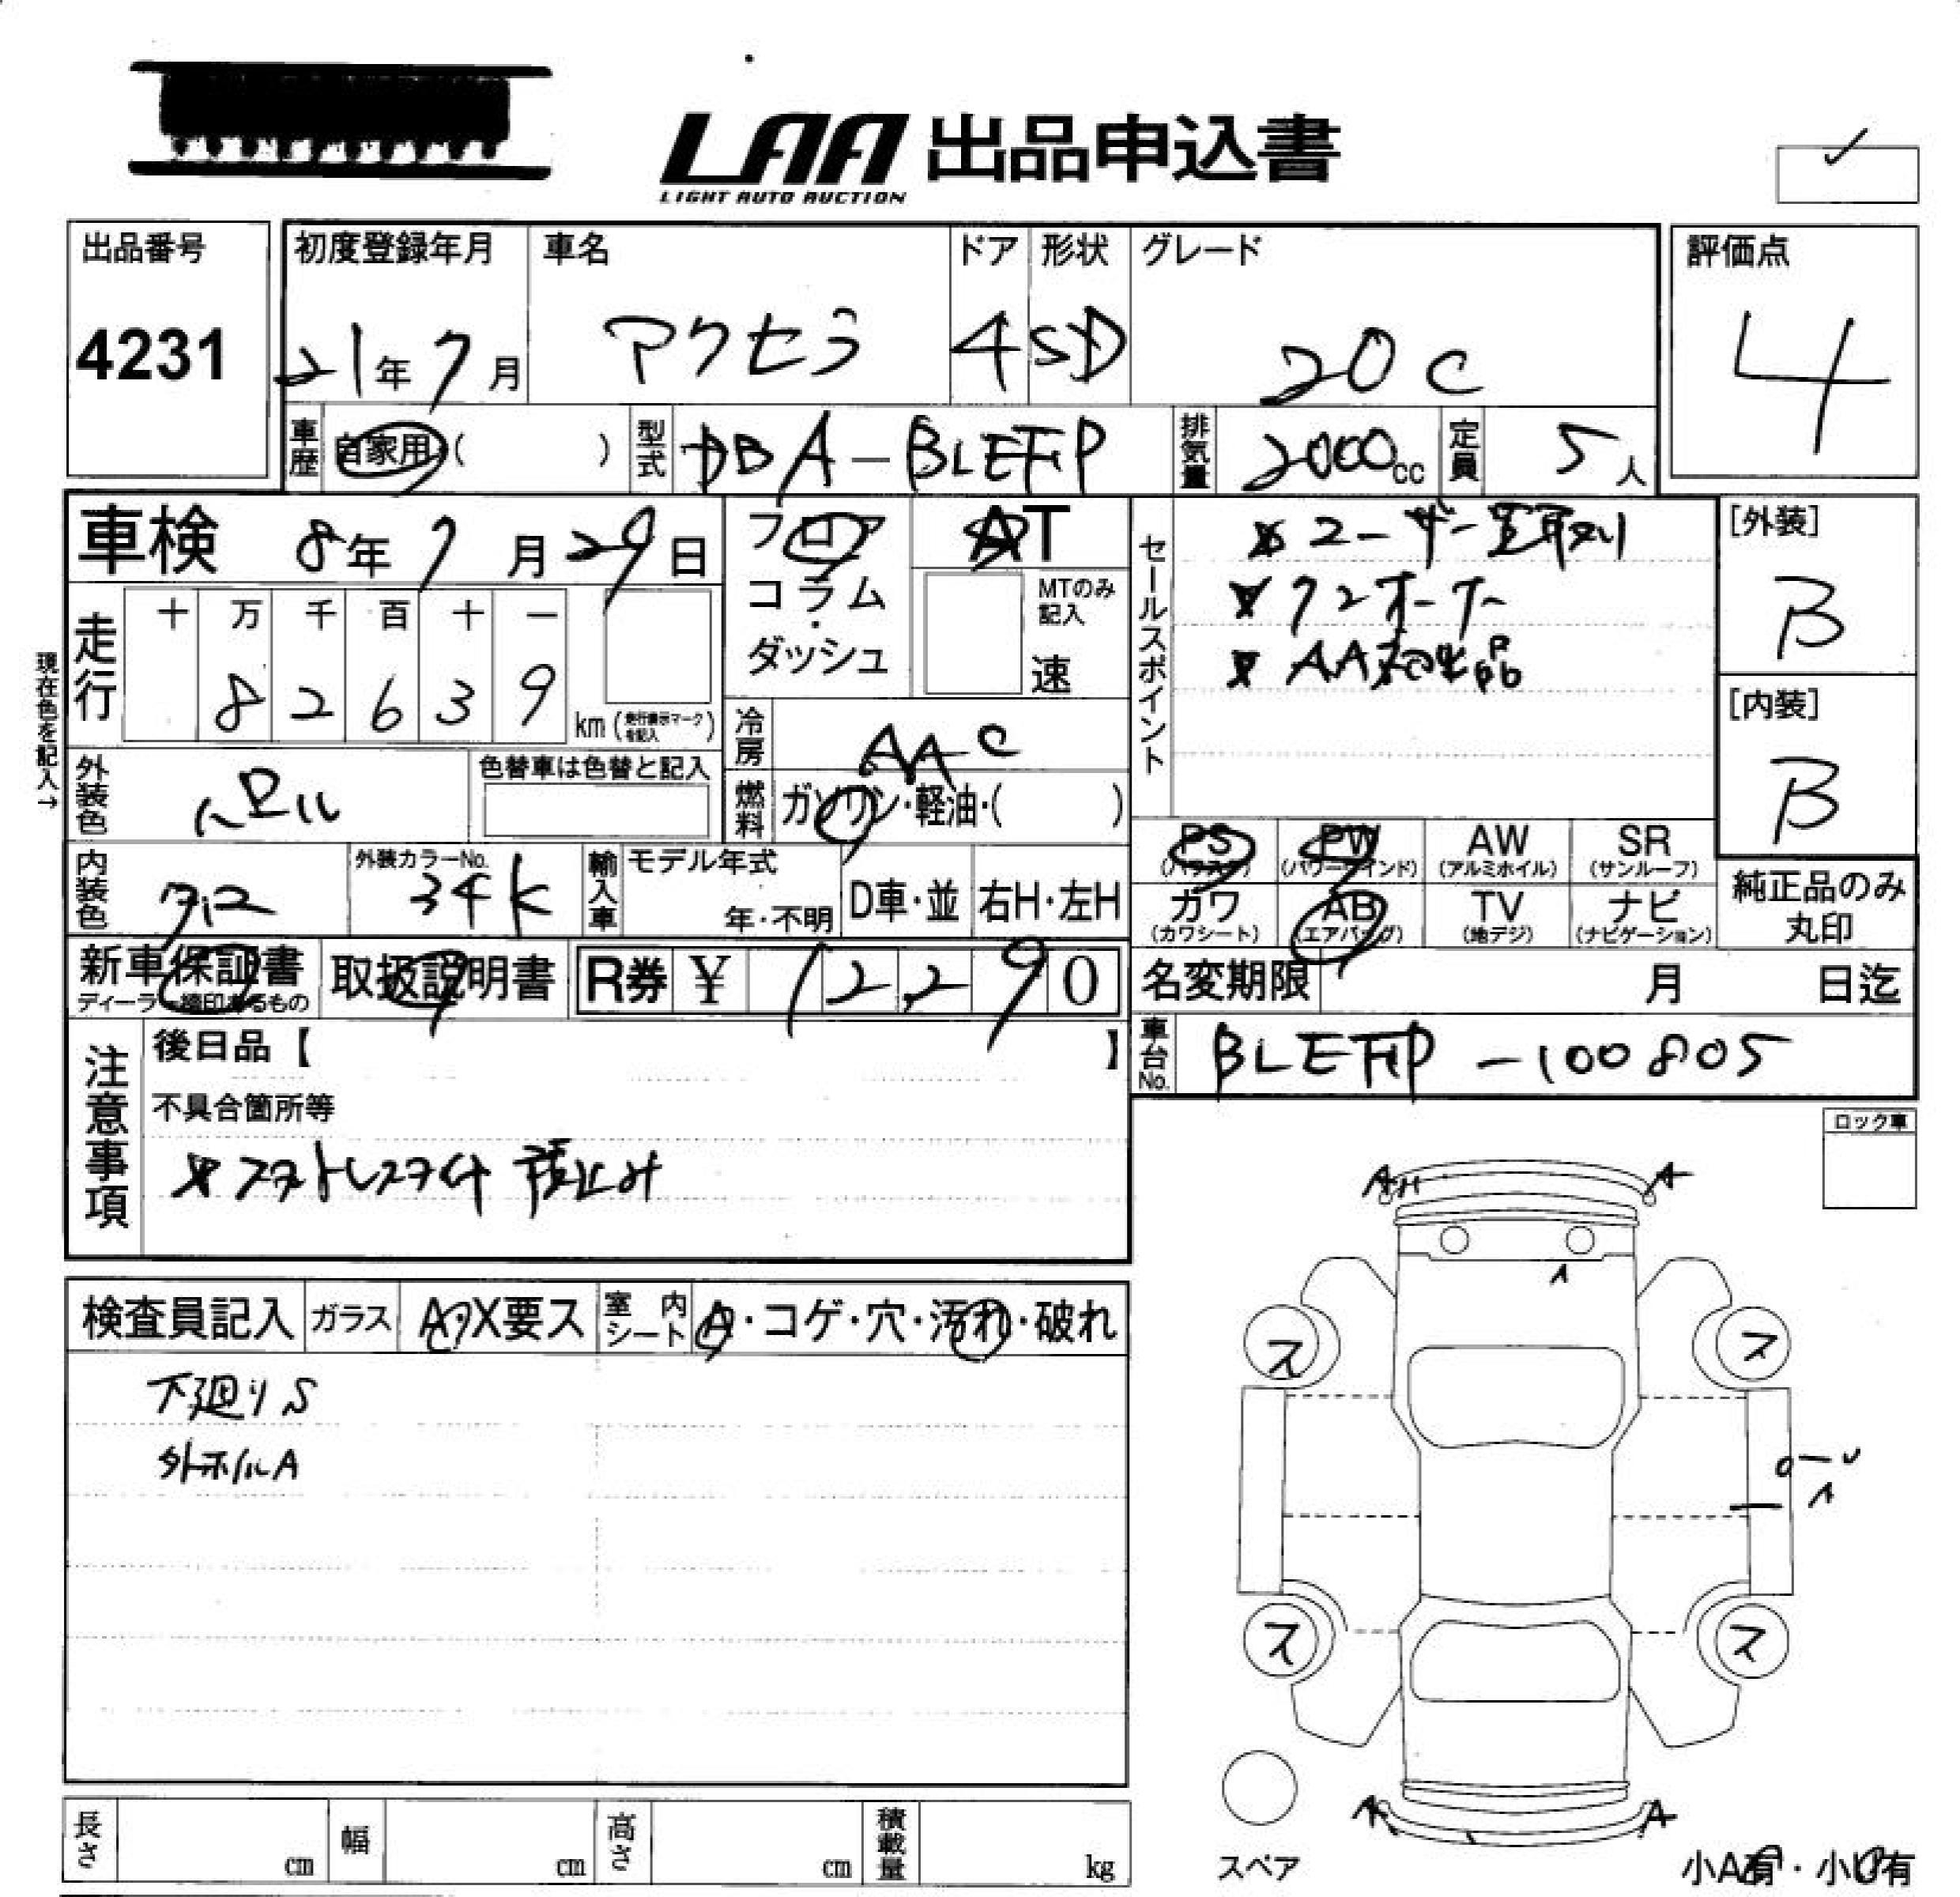 LAA 出品申込書
LIGHT AUTO AUCTION
出品番号
4231
初度登録年月
21年7月
車名
アクセラ
ドア
4
形状
SD
グレード
20C
評価点
4
車歴
自家用 ( )
型式
DBA-BLEFP
排気量
2000cc
定員
5人
車検 8年7月29日
フロア
コラム
ダッシュ
AT
MTのみ記入
速
セールスポイント
ユーザー買取り
ワンオーナー
AA初出品
[外装]
B
[内装]
B
現在色を記入→
走行
十 万 千 百 十 一
8 2 6 3 9
km (走行表示マークを記入)
冷房
AAC
燃料
ガソリン・軽油・( )
外装色
パール
色替車は色替と記入
内装色
クロ
外装カラーNo.
34K
輸入車
モデル年式
年・不明
D車・並
右H・左H
PS
(パワステ)
PW
(パワーウインド)
AW
(アルミホイル)
SR
(サンルーフ)
カワ
(カワシート)
AB
(エアバッグ)
TV
(地デジ)
ナビ
(ナビゲーション)
純正品のみ
丸印
新車保証書
ディーラー捺印あるもの
取扱説明書
R券 ¥ 12,290
名変期限 月 日迄
車台No.
BLEFP-100805
注意事項
後日品【 】
不具合箇所等
スタットレスタイヤ積込み
ロック車
検査員記入
ガラス
A・X要ス
室内シート
A・コゲ・穴・汚れ・破れ
下廻りS
外ホイルA
A
A
ス
ス
ス
ス
A
スペア
小A有・小U有
長さ cm
幅 cm
高さ cm
積載量 kg